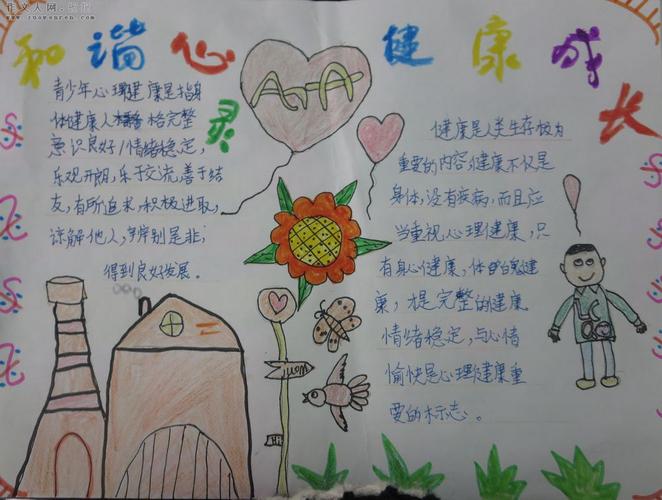 作文人网
www.zuowenren.com
和谐心灵
健康成长
青少年心理健康是指身
体健康人格完整
意识良好，情绪稳定，
乐观开朗，乐于交流，善于结
友，有所追求，积极进取，
谅解他人，辨别是非，
得到良好发展。
健康是人类生存极为
重要的内容，健康不仅是
身体，没有疾病，而且应
当重视心理健康，只
有身心健康，体魄健
康，才是完整的健康
情绪稳定，与心情
愉快是心理健康重
要的标志。